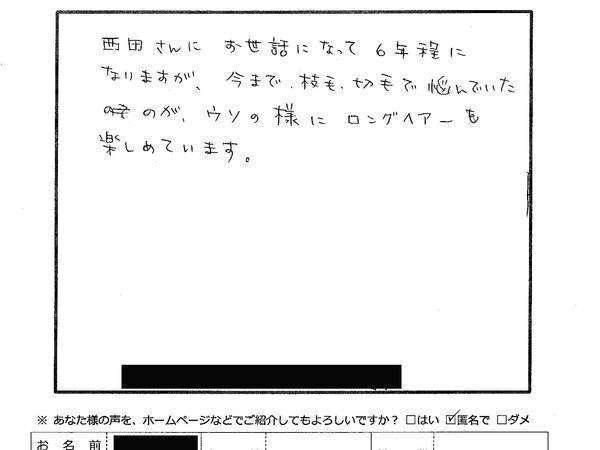 西田さんに お世話になって 6年程に
なりますが、 今まで、枝毛、切毛で悩んでいた
のが、ウソの様に ロングヘアーを
楽しめています。
※ あなた様の声を、ホームページなどでご紹介してもよろしいですか？ □はい ☑匿名で □ダメ
お 名 前